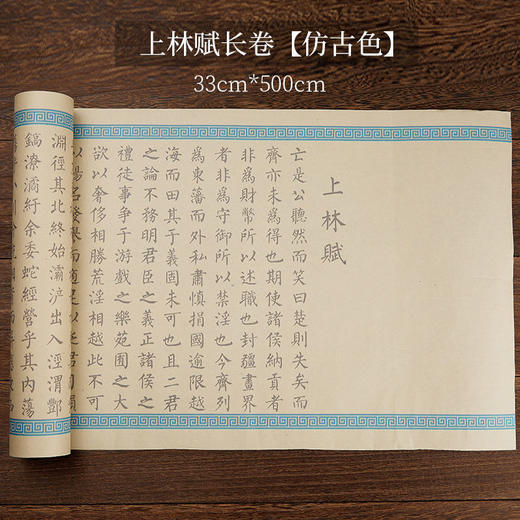 上林赋长卷【仿古色】
33cm*500cm
上林賦
亡是公聽然而笑曰楚則失矣而
齊亦未爲得也期使諸侯納貢者
非爲財幣所以述職也封疆畫界
者非爲守御所以禁淫也今齊列
爲東藩而外私肅慎捐國逾限越
海而田其于義固未可也且二君
之論不務明君臣之義正諸侯之
禮徒事爭于游戲之樂苑囿之大
欲以奢侈相勝荒淫相越此不可
以揚名發
淵徑其北終始灞滻出入涇渭酆
鎬潦潏紆余委蛇經營乎其內蕩